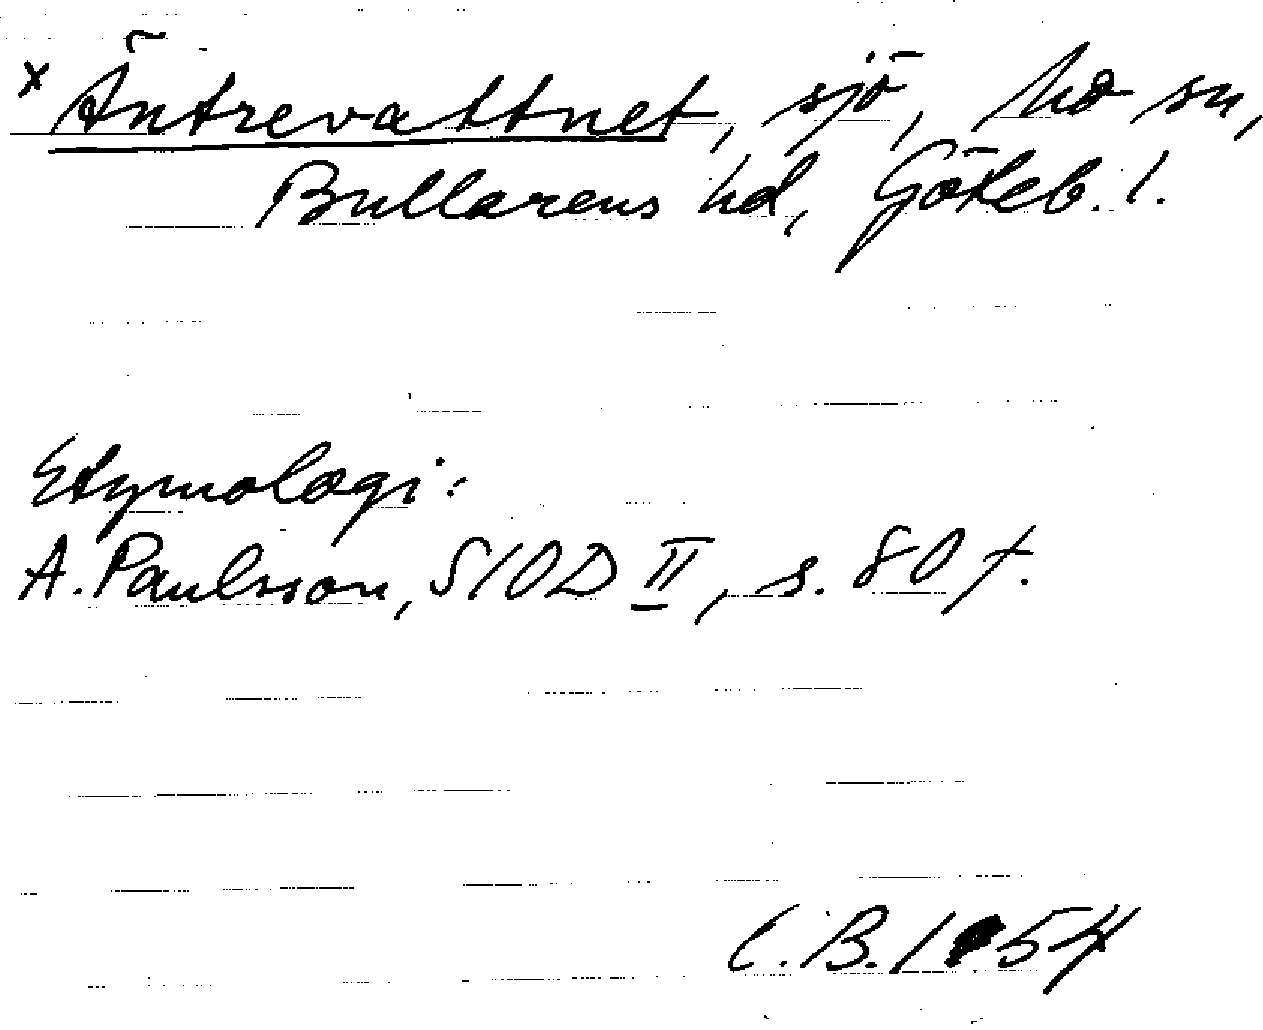 x Äntrevattnet, sjö, Mo sn,
Bullarens hd, Göteb. l.
Etymologi:
A. Paulsson, SIOD II, s. 80 f.
C. B. 1954